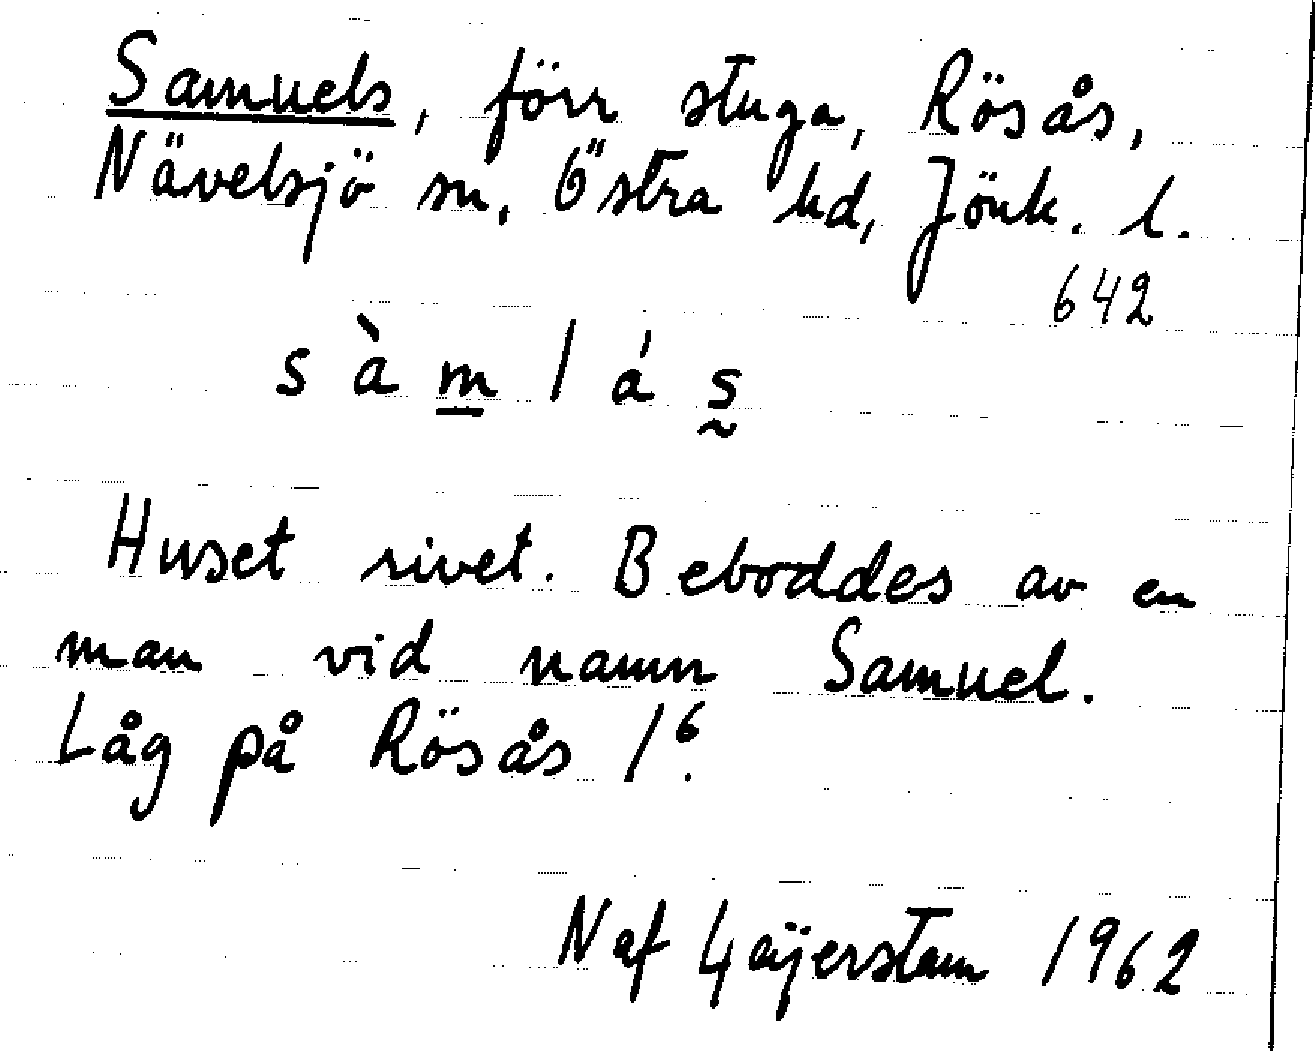 Samuels, förr stuga, Rösås,
Nävelsjö sn, Östra hd, Jönk. l.
642
s à m l á s
Huset rivet. Beboddes av en
man vid namn Samuel.
Låg på Rösås 1⁶.
N af Geijerstam 1962